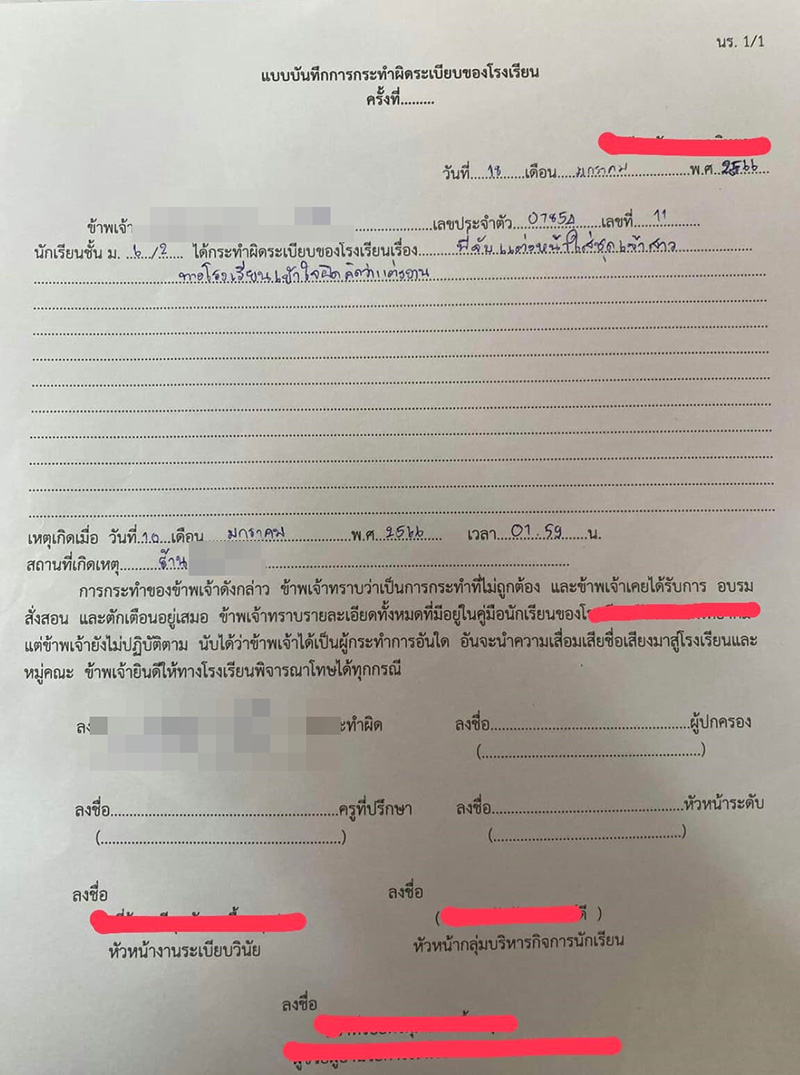 นร. 1/1
แบบบันทึกการกระทำผิดระเบียบของโรงเรียน
ครั้งที่.........
วันที่...18...เดือน...มกราคม...พ.ศ...2566...
ข้าพเจ้า...เลขประจำตัว...07854...เลขที่...11...
นักเรียนชั้น ม. ..6../2.... ได้กระทำผิดระเบียบของโรงเรียนเรื่อง...พี่จับแต่งหน้าใส่ชุดเจ้าสาว...
ทางโรงเรียนเข้าใจผิดคิดว่าแต่งงาน
เหตุเกิดเมื่อ วันที่.10..เดือน...มกราคม...พ.ศ...2566... เวลา...01.59...น.
สถานที่เกิดเหตุ...ร้าน...
การกระทำของข้าพเจ้าดังกล่าว ข้าพเจ้าทราบว่าเป็นการกระทำที่ไม่ถูกต้อง และข้าพเจ้าเคยได้รับการ อบรม
สั่งสอน และตักเตือนอยู่เสมอ ข้าพเจ้าทราบรายละเอียดทั้งหมดที่มีอยู่ในคู่มือนักเรียนของ
แต่ข้าพเจ้ายังไม่ปฏิบัติตาม นับได้ว่าข้าพเจ้าได้เป็นผู้กระทำการอันใด อันจะนำความเสื่อมเสียชื่อเสียงมาสู่โรงเรียนและ
หมู่คณะ ข้าพเจ้ายินดีให้ทางโรงเรียนพิจารณาโทษได้ทุกกรณี
ะทำผิด ลงชื่อ...ผู้ปกครอง
(...)
ลงชื่อ...ครูที่ปรึกษา ลงชื่อ...หัวหน้าระดับ
(...) (...)
ลงชื่อ ลงชื่อ
( )
หัวหน้างานระเบียบวินัย หัวหน้ากลุ่มบริหารกิจการนักเรียน
ลงชื่อ